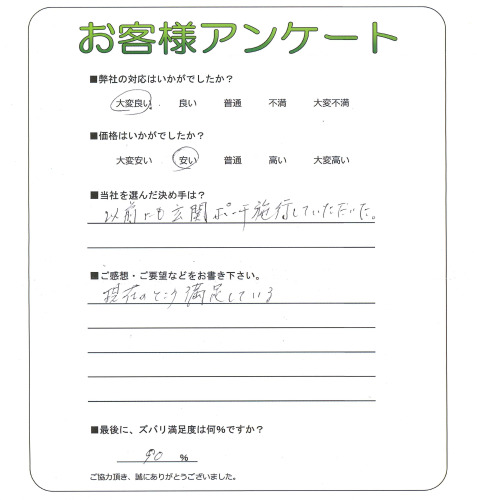 お客様アンケート
■弊社の対応はいかがでしたか？
大変良い 良い 普通 不満 大変不満
■価格はいかがでしたか？
大変安い 安い 普通 高い 大変高い
■当社を選んだ決め手は？
以前にも玄関ポーチ施行していただいた。
■ご感想・ご要望などをお書き下さい。
現在のところ満足している
■最後に、ズバリ満足度は何%ですか？
90 %
ご協力頂き、誠にありがとうございました。